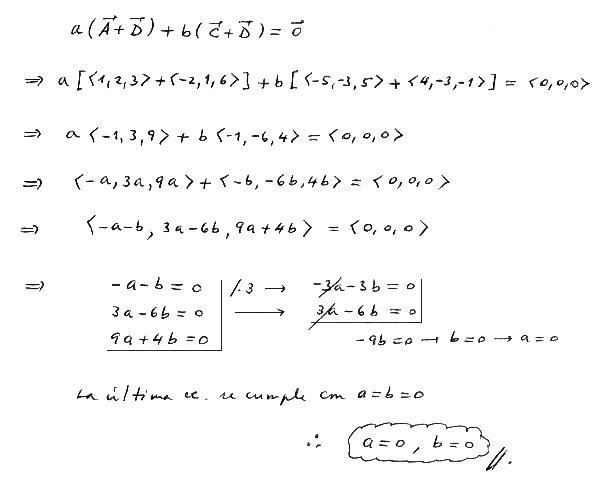 a(A⃗+D⃗)+b(C⃗+D⃗)=0⃗
⇒ a[<1,2,3>+<-2,1,6>]+b[<-5,-3,5>+<4,-3,-1>] = <0,0,0>
⇒ a<-1,3,9>+b<-1,-6,4>=<0,0,0>
⇒ <-a,3a,9a>+<-b,-6b,4b>=<0,0,0>
⇒ <-a-b, 3a-6b, 9a+4b> = <0,0,0>
⇒ -a-b=0 /·3 → -3a-3b=0
3a-6b=0 → 3a-6b=0
9a+4b=0 -9b=0 → b=0 → a=0
La última ec. se cumple con a=b=0
∴ a=0, b=0 //.